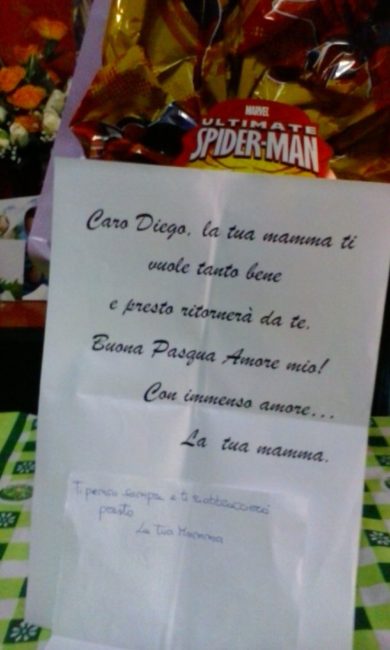 MARVEL
ULTIMATE
SPIDER-MAN
Caro Diego, la tua mamma ti
vuole tanto bene
e presto ritornerà da te.
Buona Pasqua Amore mio!
Con immenso amore...
La tua mamma.
Ti penso sempre e ti riabbraccerò
presto
La Tua Mamma